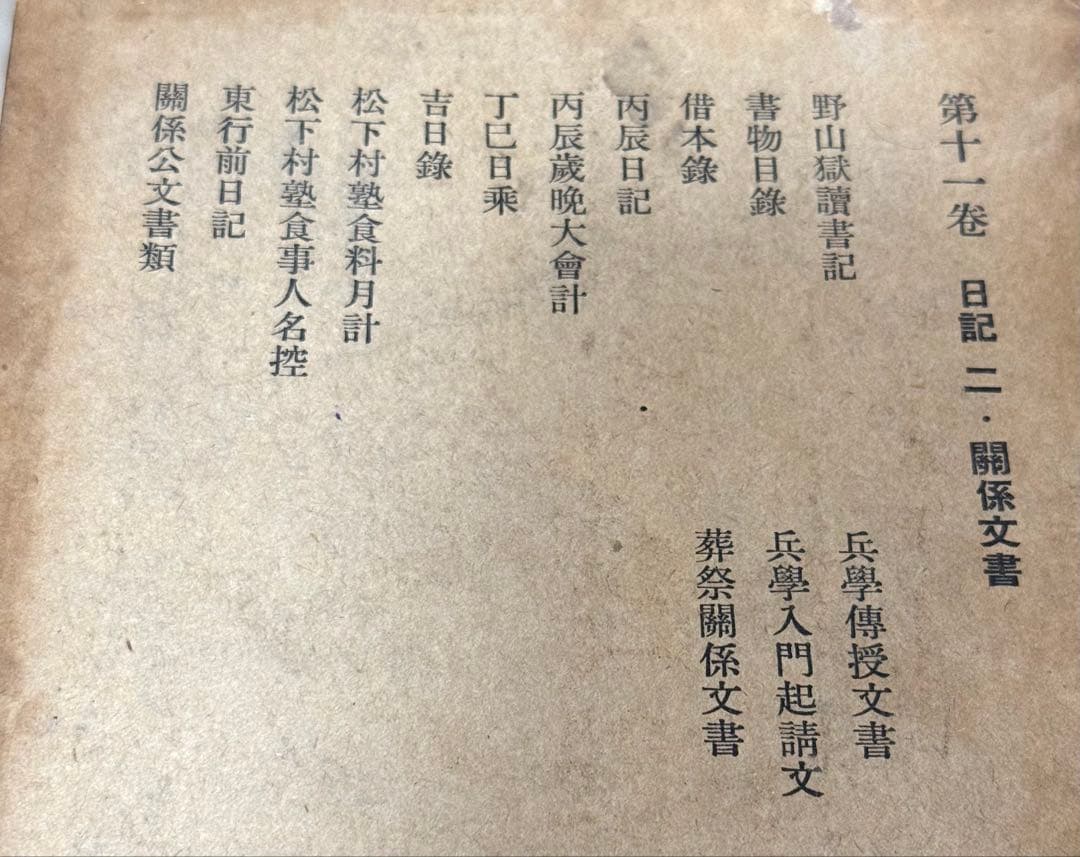 第十一卷　日記 二・關係文書
野山獄讀書記
書物目錄
借本錄
丙辰日記
丙辰歲晚大會計
丁巳日乘
吉日錄
松下村塾食料月計
松下村塾食事人名控
東行前日記
關係公文書類
兵學傳授文書
兵學入門起請文
葬祭關係文書